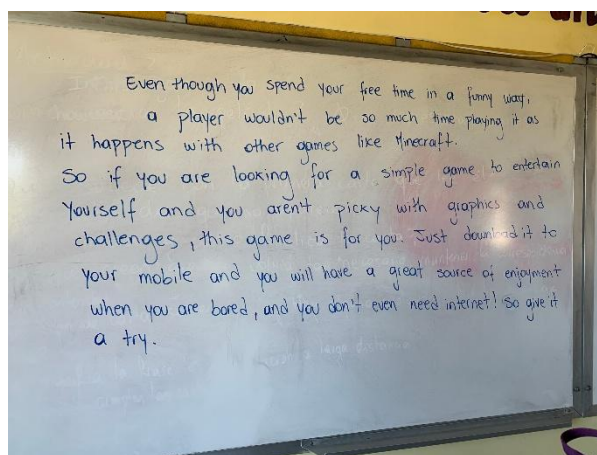 Even though you spend your free time in a funny way,
a player wouldn't be so much time playing it as
it happens with other games like Minecraft.
So if you are looking for a simple game to entertain
yourself and you aren't picky with graphics and
challenges, this game is for you. Just download it to
your mobile and you will have a great source of enjoyment
when you are bored, and you don't even need internet! So give it
a try.